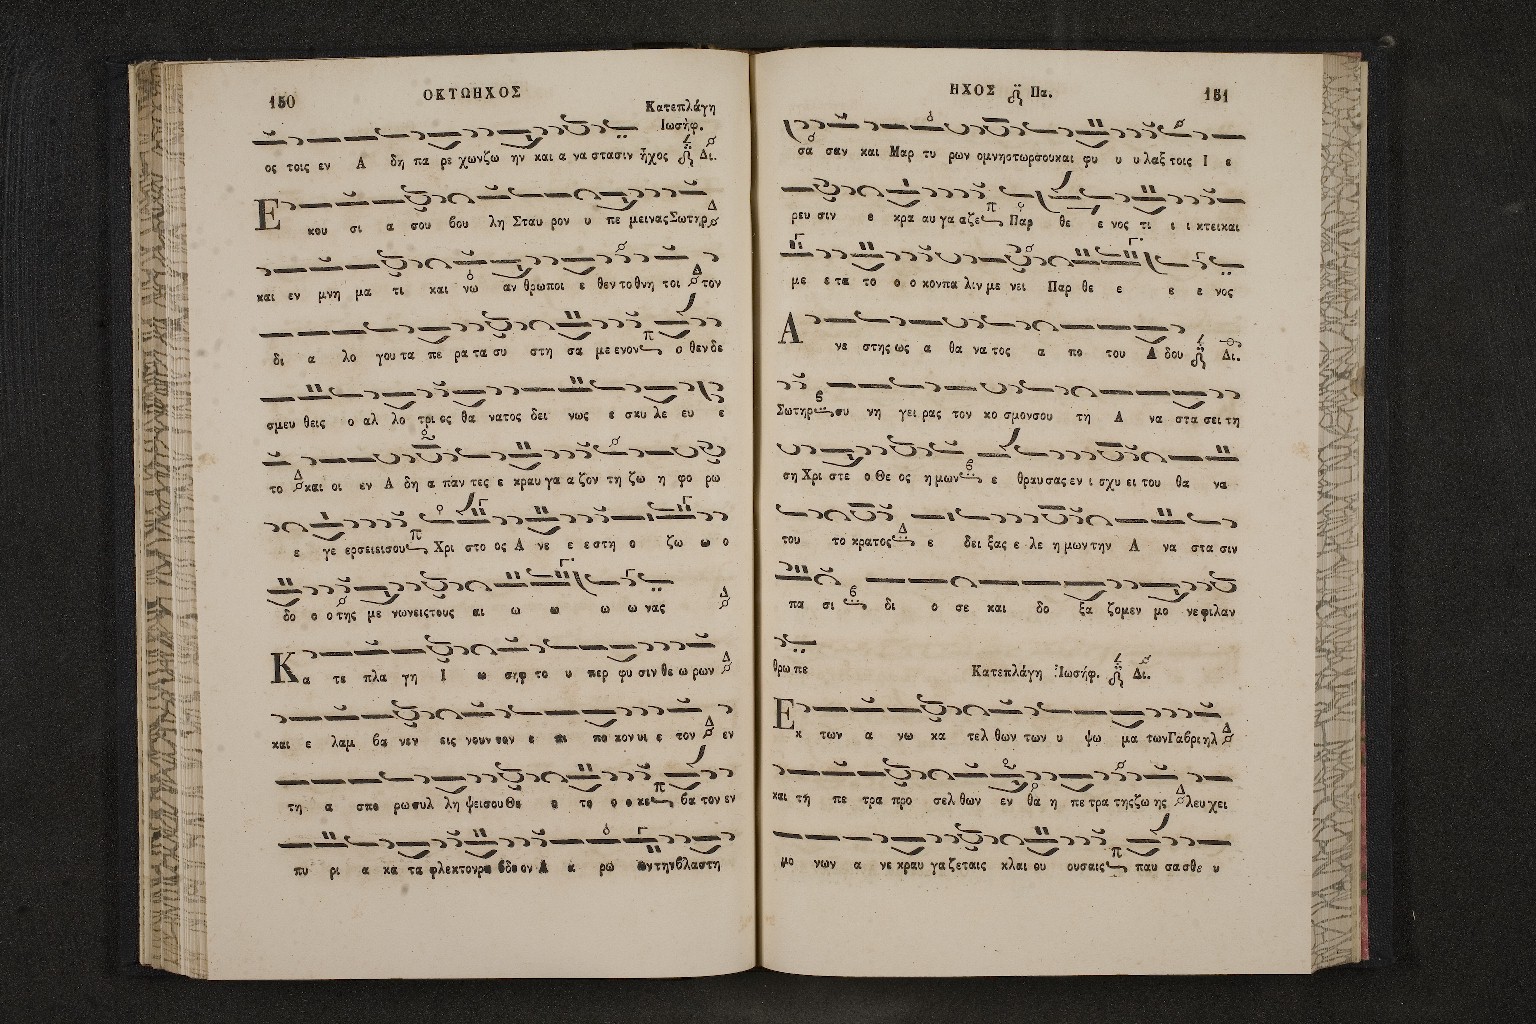 150 ΟΚΤΩΗΧΟΣ
Κατεπλάγη
Ιωσήφ.
ος τοις εν Α δη πα ρε χωνζω ην και α να στασιν ἦχος Δι.
Ε κου σι α σου βου λη Σταυ ρον υ πε μεινας Σωτηρ Δ
και εν μνη μα τι και νω αν θρωποι ε θεν το θνη τοι Δ τον
δι α λο γου τα πε ρα τα συ στη σα με ενον π ο θεν δε
σμευ θεις ο αλ λο τρι ος θα νατος δει νως ε σκυ λε ευ ε
το Δ και οι εν Α δη α πάν τες ε κραυ γα α ζον τη ζω η φο ρω
ε γε ερσειεισου π Χρι στο ος Α νε ε ε στη ο ζω ω ο
δο ο ο της με νωνειςτους αι ω ω ω ω νας Δ
Κ α τε πλα γη Ι ω σηφ το υ περ φυ σιν θε ω ρων Δ
και ε λαμ βα νεν εις νουν τον ε πι πο κον υι ε τον Δ εν
τη α σπο ρω συλ λη ψεισου Θε ο το ο ο κε π βα τον εν
πυ ρι α κα τα φλεκτονρα βδο ον Α α ρω ωντηνβλαστη
ΗΧΟΣ Πα. 151
σα σαν και Μαρ τυ ρων ομνηστωρσουκαι φυ υ υ λαξ τοις Ι ε
ρευ σιν ε κρα αυ γα αζε π Παρ θε ε νος τι ι ι κτεικαι
με ε τα το ο ο κονπα λιν με νει Παρ θε ε ε ε νος
Α νε στης ως α θα να τος α πο του Α δου Δι.
Σωτηρ β συ νη γει ρας τον κο σμονσου τη Α να στα σει τη
ση Χρι στε ο Θε ος η μων β ε θραυσας εν ι σχυ ει του θα να
του το κρατος Δ ε δει ξας ε λε η μων την Α να στα σιν
πα σι β δι ο σε και δο ξα ζομεν μο νε φιλαν
θρω πε Κατεπλάγη Ἰωσήφ. Δι.
Ε κ των α νω κα τελ θων των υ ψω μα των Γαβριηλ Δ
και τη πε τρα προ σελ θων εν θα η πε τρα τηςζω ης Δ λευ χει
μο νων α νε κραυ γα ζεταις κλαι ου ουσαις π παυ σα σθε υ